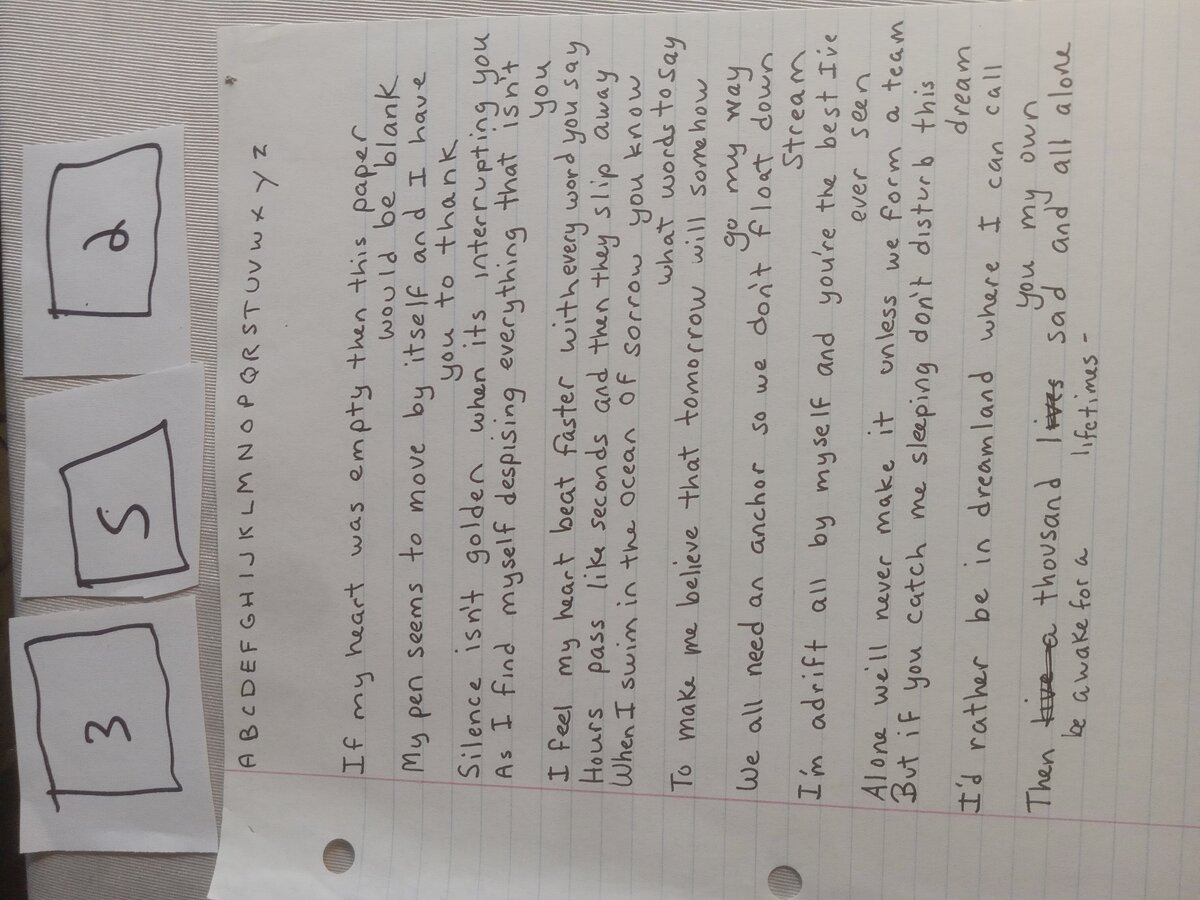 3 5 2
A B C D E F G H I J K L M N O P Q R S T U V W X Y Z
If my heart was empty then this paper
would be blank
My pen seems to move by itself and I have
you to thank
Silence isn't golden when its interrupting you
As I find myself despising everything that isn't
you
I feel my heart beat faster with every word you say
Hours pass like seconds and then they slip away
When I swim in the ocean of sorrow you know
what words to say
To make me believe that tomorrow will somehow
go my way
We all need an anchor so we don't float down
stream
I'm adrift all by myself and you're the best I've
ever seen
Alone we'll never make it unless we form a team
But if you catch me sleeping don't disturb this
dream
I'd rather be in dreamland where I can call
you my own
Then live a thousand lives sad and all alone
be awake for a lifetimes-